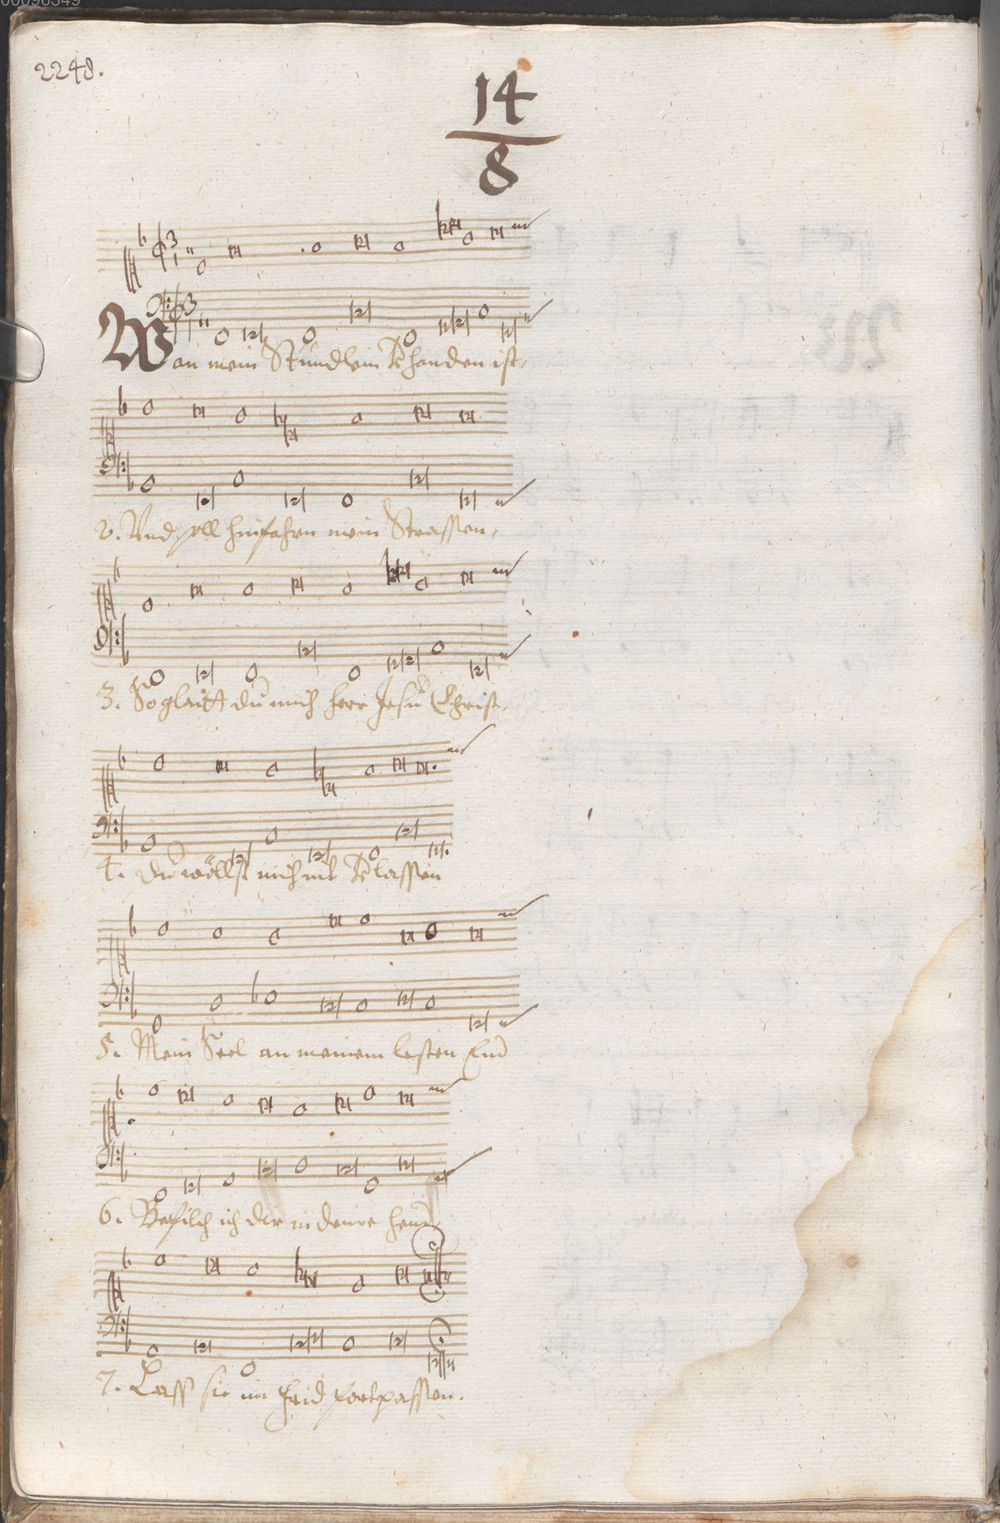 00098349
2248.
14
8
Wan mein Stündlein Vorhanden ist,
2. Vnd soll hinfahrn mein Strassen,
3. So glaitt du mich Herr Jesu Christ,
4. Du wöllst mich nit Verlassen
5. Mein Seel an meinem lesten End
6. Befilch ich dir in deine hend,
7. Lass sie im frid